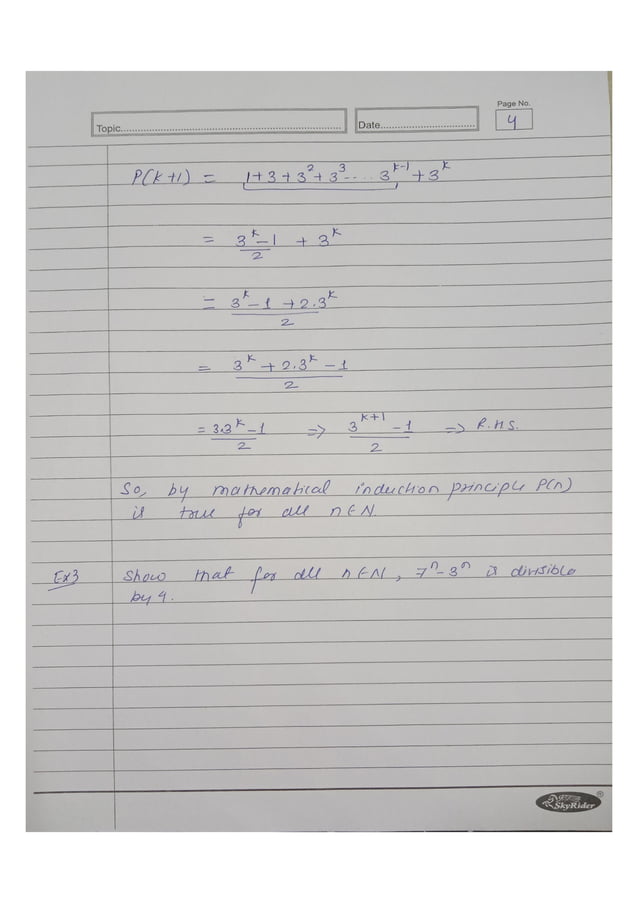 Page No.
Topic................ Date................ 4
P(k+1) = 1+3+3²+3³.... 3^(k-1) + 3^k
= (3^k-1)/2 + 3^k
= (3^k-1+2.3^k)/2
= (3^k+2.3^k-1)/2
= (3.3^k-1)/2 => (3^(k+1)-1)/2 => R.H.S.
So, by mathematical induction principle P(n)
is true for all n∈N
Ex3 Show that for all n∈N, 7ⁿ-3ⁿ is divisible
by 4.
SkyRider